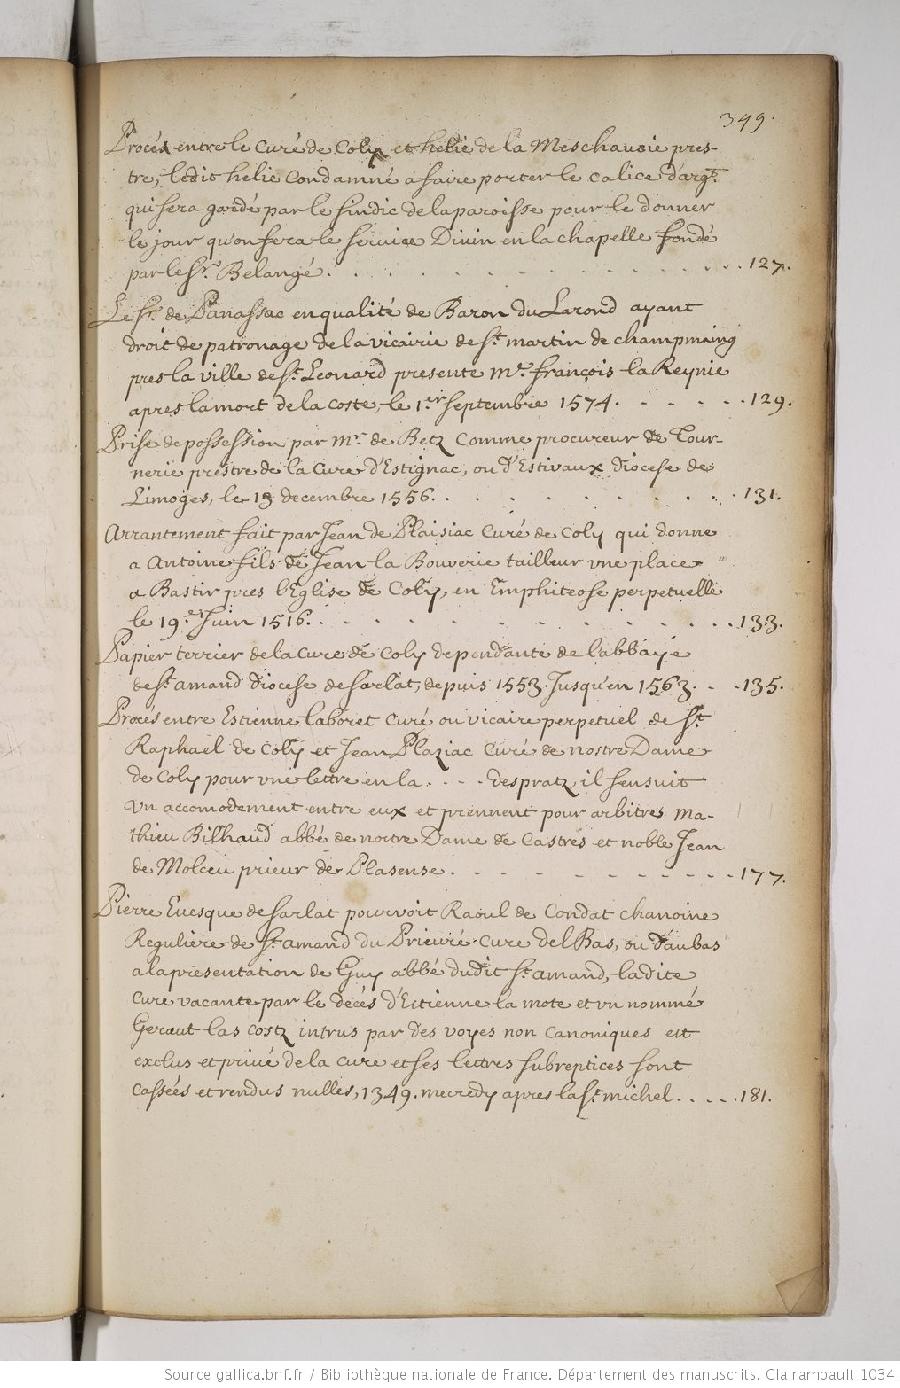 349.
Procés entre le Curé de Coly et helie de la Meschausie pres-
tre, ledit helie Condamné a faire porter le calice d'argt.
qui sera gardé par le sindic de la paroisse pour le donner
le jour qu'on fera le service Divin en la chapelle fondé
par le Sr. Belangé. . . . . . . . . . . . . . 127.
Le Sr. de Panassac en qualité de Baron du Larond ayant
droit de patronage de la vicairie de St. martin de champmaing
pres la ville de St. Leonard presente Mre. françois la Reynie
apres la mort de la coste, le 1er. septembre 1574. . . . . . 129.
Prise de possession par Mr. de Betz Comme procureur de Tour-
nerie prestre de la Cure d'Estignac, ou d'Estivaux diocese de
Limoges, le 19 decembre 1556. . . . . . . . . 131.
Arrantement fait par Jean de Plaisiac Curé de Coly qui donne
a Antoine fils de Jean la Bouverie tailleur une place
a Bastir pres l'Eglise de Coly, en Emphiteose perpetuelle
le 19e. Juin 1516. . . . . . . . . . . . 133.
Papier terrier de la Cure de Coly dependante de l'abbaye
de St. amand diocese de Sarlat, depuis 1553. Jusqu'en 1563. . . 135.
Procés entre Estienne laboret Curé ou vicaire perpetuel de St.
Raphael de Coly et Jean Plaziac Curé de nostre Dame
de Coly pour une lettre en la . . . despratz, il s'ensuit
un accomodement entre eux et prennent pour arbitres Ma-
thieu Bilhaud abbé de nostre Dame de Castres et noble Jean
de Molceu prieur de Plasense. . . . . . . . . . . 177.
Pierre Evesque de Sarlat pourvoit Raoul de Condat chanoine
Reguliere de St. amand du Prieuré-Cure del Bas, ou d'aubas
a la presentation de Guy abbé dudit St. amand, ladite
Cure vacante par le decés d'Etienne la mote et un nommé
Geraut las Costz intrus par des voyes non Canoniques est
exclus et privé de la cure et ses lettres subreptices sont
cassées et rendus nulles, 1349. mecredy apres la St. michel. . . . . 181.
Source gallica.bnf.fr / Bibliothèque nationale de France. Département des manuscrits. Clairambault 1034